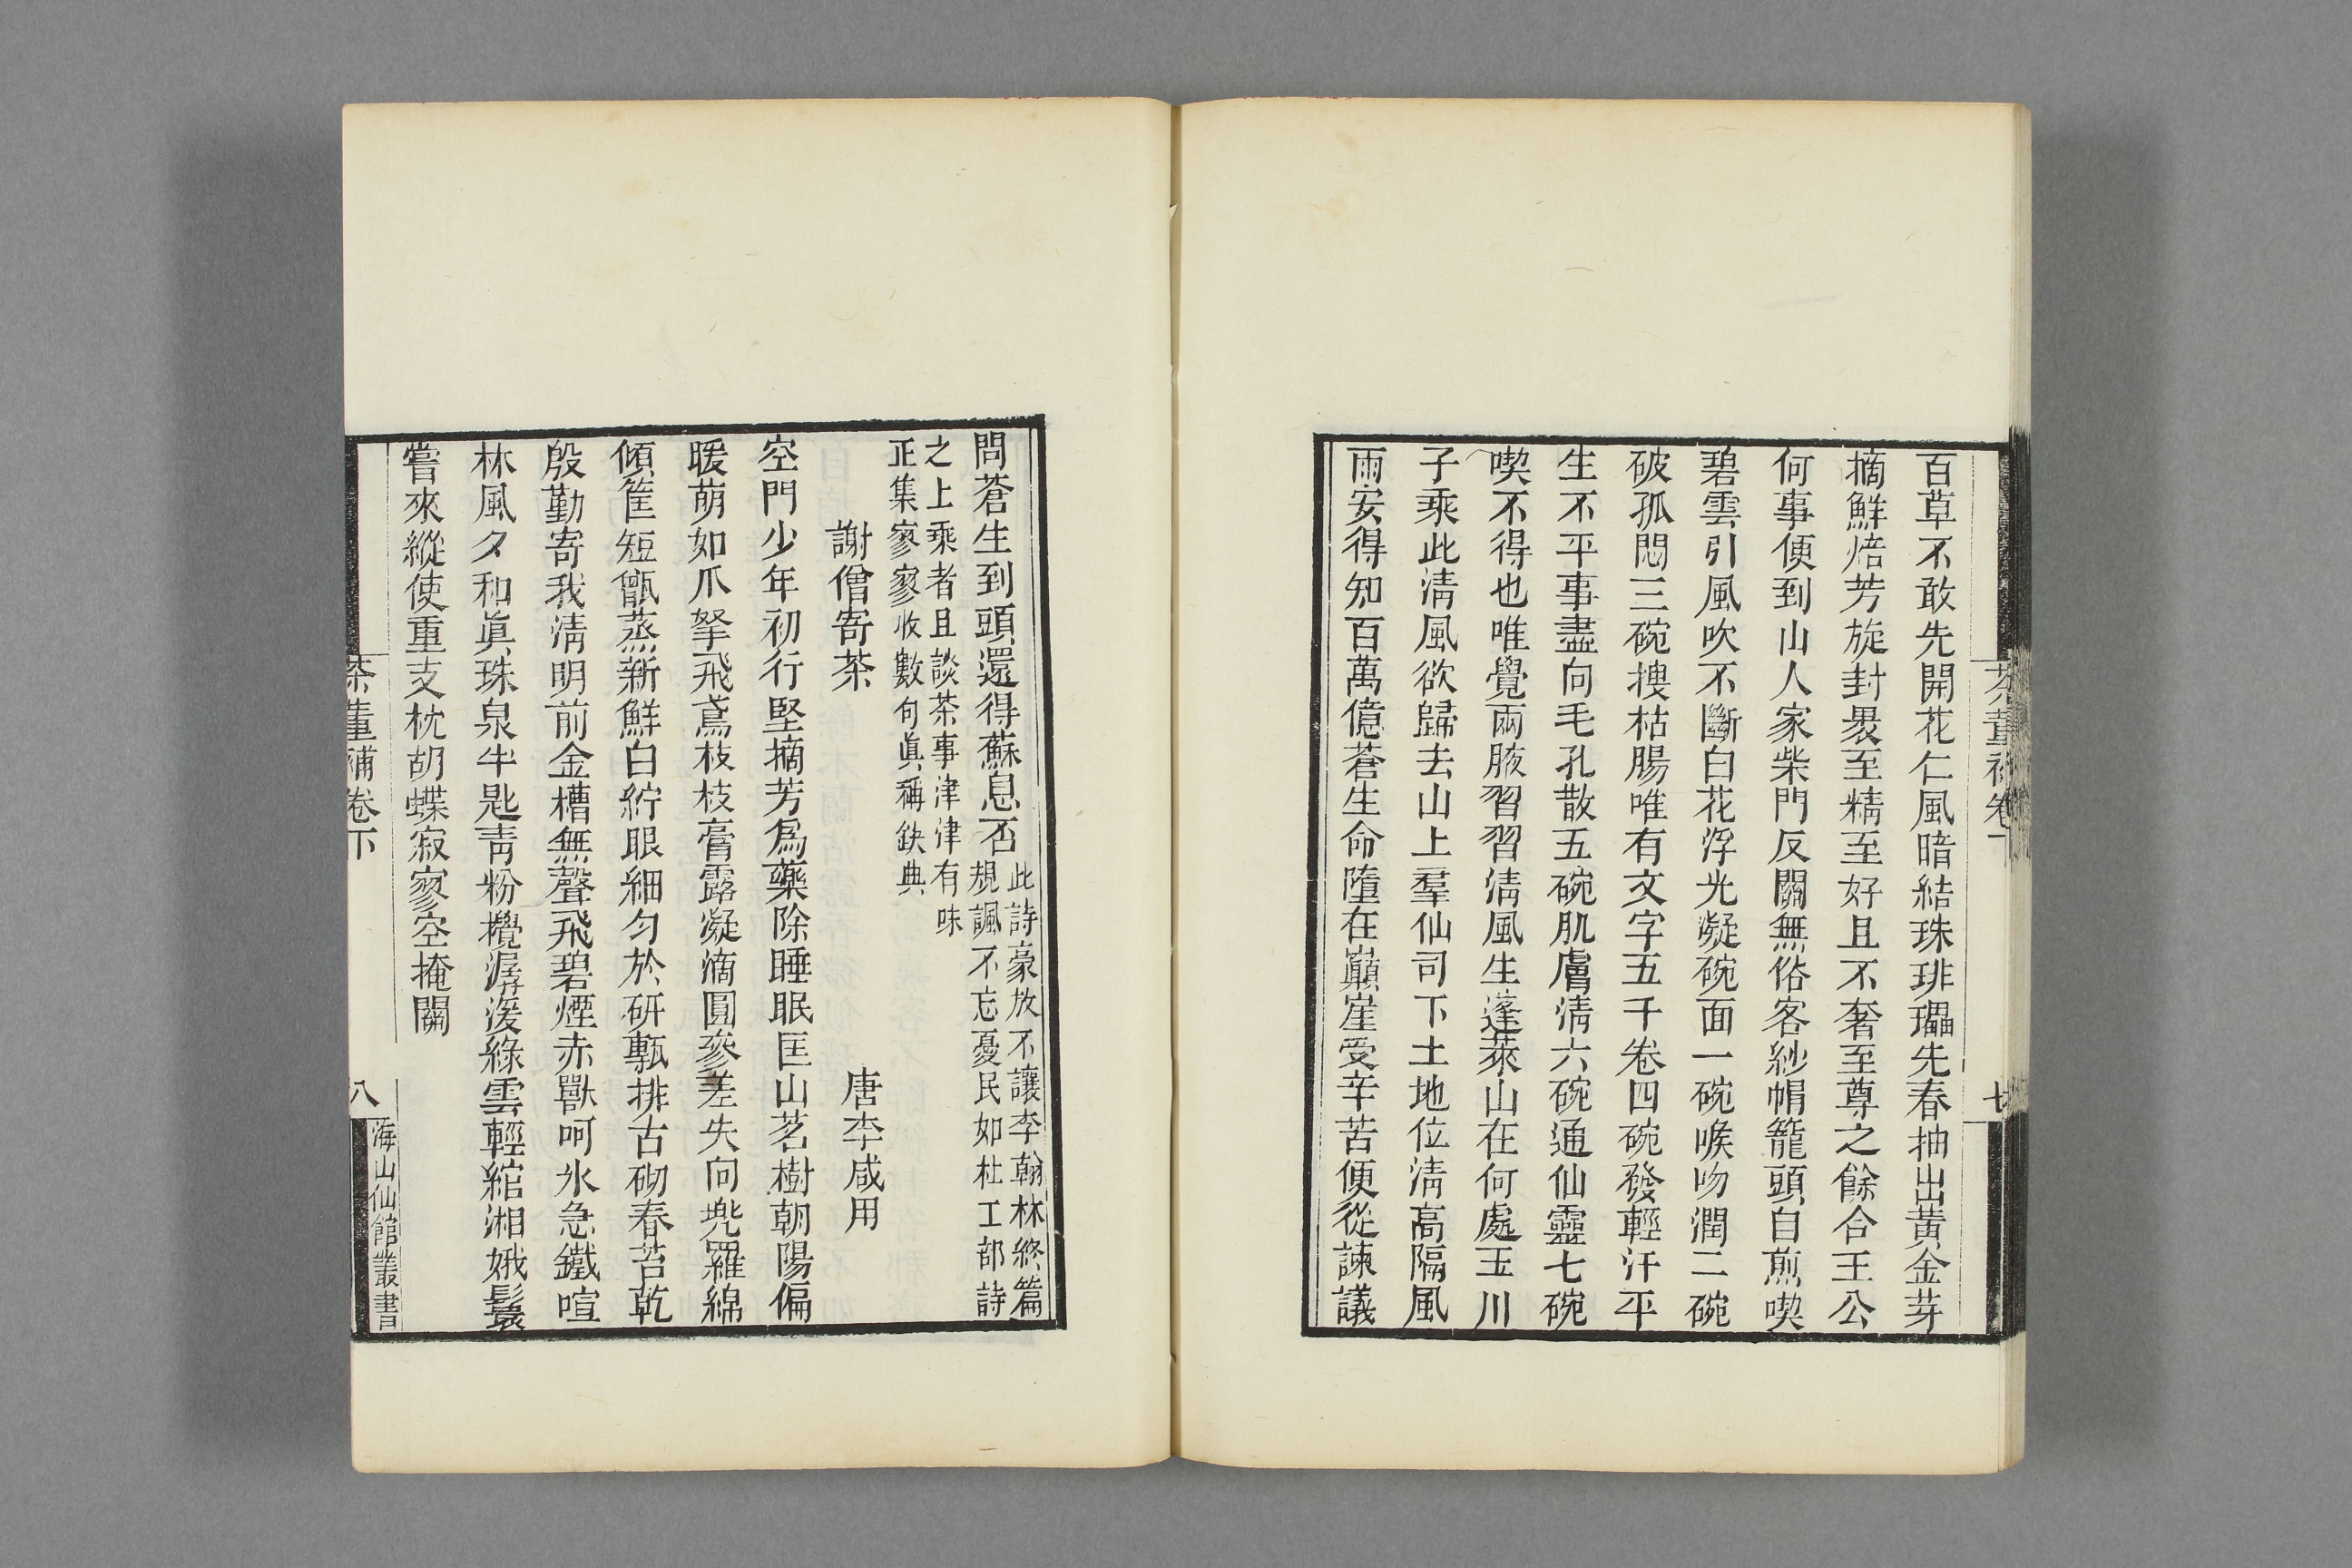 茶董補卷下
七
百草不敢先開花仁風暗結珠琲瓃先春抽出黃金芽
摘鮮焙芳旋封褁至精至好且不奢至尊之餘合王公
何事便到山人家柴門反關無俗客紗帽籠頭自煎喫
碧雲引風吹不斷白花浮光凝碗面一碗喉吻潤二碗
破孤悶三碗搜枯腸唯有文字五千卷四碗發輕汗平
生不平事盡向毛孔散五碗肌膚淸六碗通仙靈七碗
喫不得也唯覺兩腋習習淸風生蓬萊山在何處玉川
子乘此淸風欲歸去山上羣仙司下土地位淸高隔風
雨安得知百萬億蒼生命墮在巔崖受辛苦便從諫議
問蒼生到頭還得蘇息否
此詩豪放不讓李翰林終篇
規諷不忘憂民如杜工部詩
之上乘者且談茶事津津有味
正集寥寥收數句眞稱鈌典
謝僧寄茶
唐李咸用
空門少年初行堅摘芳爲藥除睡眠匡山茗樹朝陽偏
暖萌如爪拏飛鳶枝枝膏露凝滴圓參差失向兠羅綿
傾筐短甑蒸新鮮白紵眼細勻於研甎排古砌春苔乾
殷勤寄我淸明前金槽無聲飛碧煙赤獸呵氷急鐵喧
林風夕和眞珠泉半匙靑粉攪潺湲綠雲輕綰湘娥鬟
嘗來縱使重支枕胡蝶寂寥空掩關
茶董補卷下
八
海山仙館叢書